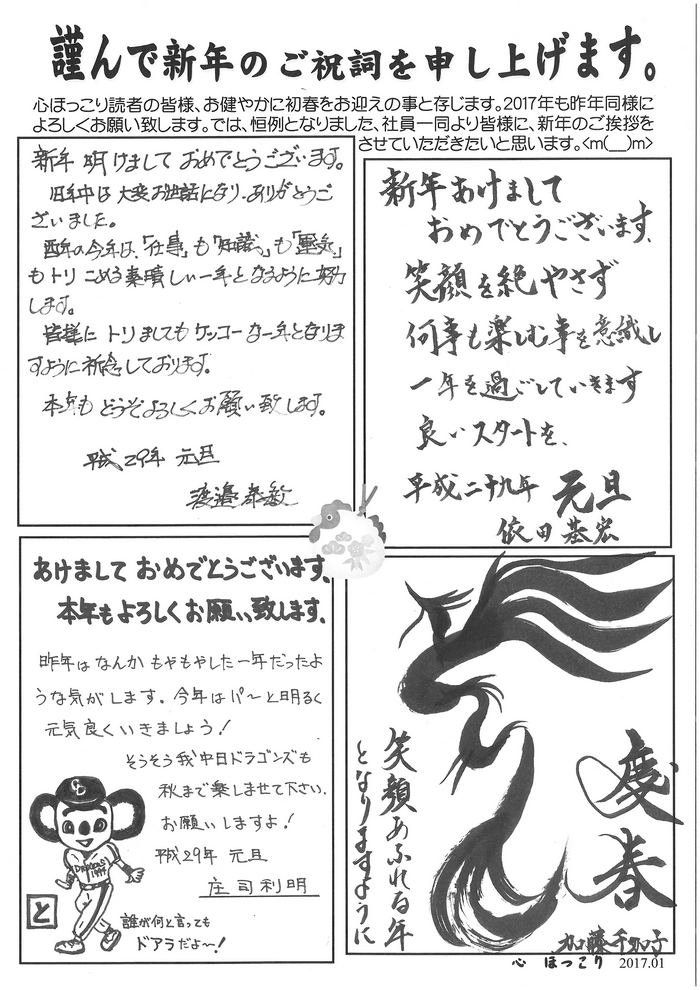 謹んで新年のご祝詞を申し上げます。
心ほっこり読者の皆様、お健やかに初春をお迎えの事と存じます。2017年も昨年同様に
よろしくお願い致します。では、恒例となりました、社員一同より皆様に、新年のご挨拶を
させていただきたいと思います。<m(__)m>
新年 明けまして おめでとうございます。
旧年中は 大変 お世話になり、ありがとうご
ざいました。
酉年の今年は、「仕事」も「知識」も「運気」
もトリ こめる 素晴しい一年となるように努力
します。
皆様に トリましても ケッコーな一年となりま
すように祈念しております。
本年も どうぞよろしくお願い致します。
平成29年 元旦
渡邉
新年あけまして
おめでとうございます、
笑顔を絶やさず
何事も楽しむ事を意識し
一年を過ごしていきます
良いスタートを、
平成二十九年 元旦
依田 基宏
あけまして おめでとうございます。
本年もよろしくお願い致します。
昨年は なんか もやもやした一年だったよ
うな気がします。今年はパ〜と明るく
元気良くいきましょう!
そうそう我中日ドラゴンズも
秋まで楽しませて下さい。
お願いしますよ!
平成29年 元旦
庄司利明
CD
DRAGONS
1994
と
誰が何と言っても
ドアラだよ〜!
慶春
笑顔あふれる年
となりますように
加藤千加子
心 ほっこり 2017.01